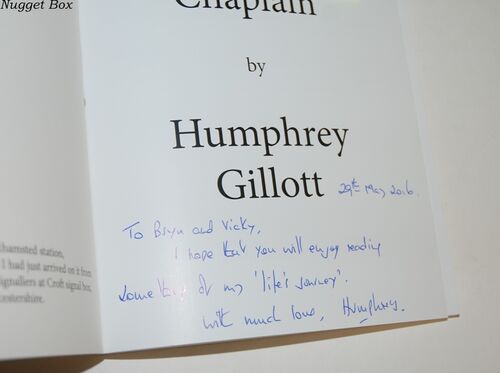 Nugget Box
Chaplain
by
Humphrey
Gillott
29th May 2016.
To Bryn and Vicky,
I hope that you will enjoy reading
something of my 'life's journey'.
with much love, Humphrey.
hamsted station,
I had just arrived on it from
ignallers at Croft signal box,
cestershire.